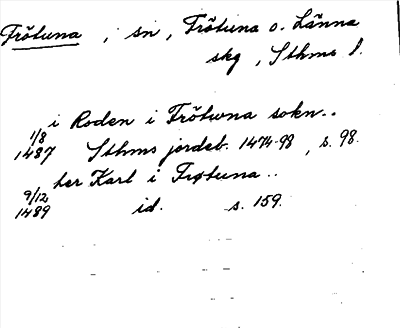 Frötuna , sn , Frötuna o. Länna
skg , Sthms l.
i Roden i Frötwna sokn..
1/8
1487 Sthms jordeb. 1474-98 , s. 98.
her Karl i Frøtuna..
9/12
1489 id. s. 159.